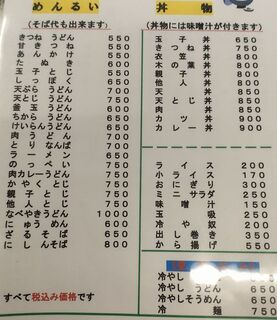 めんるい
(そば代も出来ます)
きつねうどん 550
甘きつね 550
あんかけ 550
たぬき 600
玉子とじ 550
しっぽく 650
天ぷらうどん 750
天とじうどん 750
釜玉うどん 600
ちからうどん 650
けいらんうどん 650
肉うどん 700
とりなんば 700
ラーメン 650
のっぺい 750
肉カレーうどん 750
かやくとじ 750
親子とじ 750
他人とじ 750
なべやきうどん 1000
にゅうめん 600
ざるそば 650
にしんそば 800
すべて税込み価格です
丼物
(丼物には味噌汁が付きます)
玉子丼 650
きつね丼 700
衣笠丼 700
木の葉丼 700
親子丼
他人丼
天丼
天とじ丼
肉丼
カツ丼 900
カレー丼 900
ライス 200
小ライス 170
おにぎり 300
ミニサラダ 250
味噌汁 150
玉吸 250
冷や奴 200
出し巻き 350
から揚げ 550
冷やし
冷やしうどん 650
冷やしそうめん 650
冷麺 750